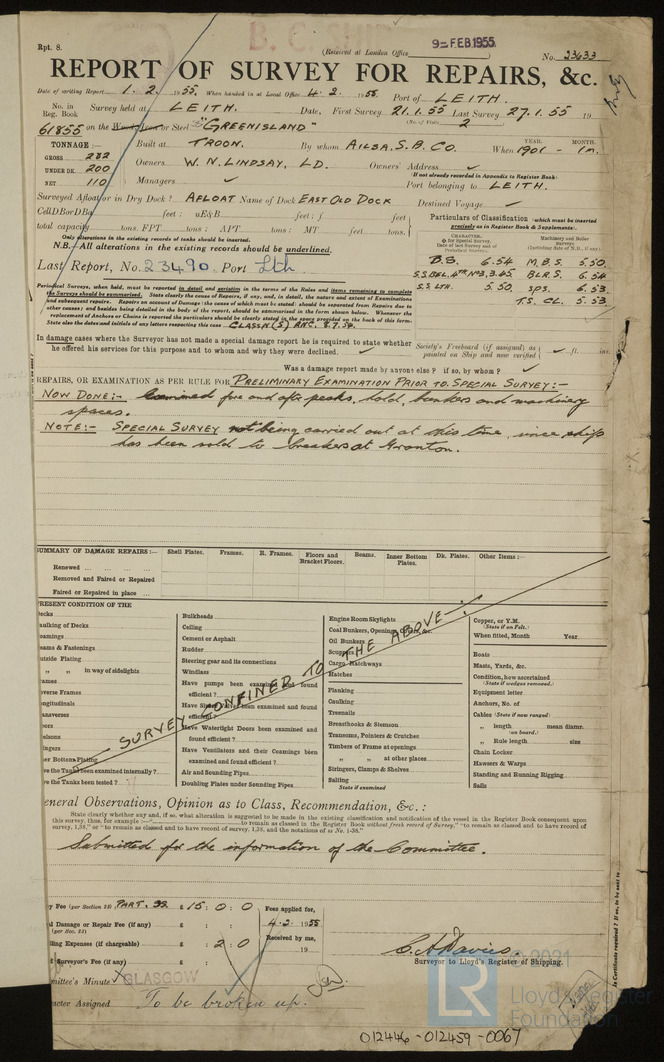 Rpt. 8.
B. C.
(Received at London Office
9-FEB.1955
No. 23633
REPORT OF SURVEY FOR REPAIRS, &c.
Date of writing Report 1. 2. 1955. When handed in at Local Office 4. 2. 1955 Port of LEITH.
No. in Reg. Book
Survey held at LEITH. Date, First Survey 21.1.55 Last Survey 27.1.55 19
(No. of Visits 2
61855 on the Wood, Iron or Steel "GREENISLAND"
TONNAGE:—
GROSS 282
UNDER DK. 200
NET 110
Built at TROON. By whom AILSA. S. B. CO. When YEAR. 1901 - MONTH. 1m.
Owners W. N. LINDSAY, LD. Owners' Address ✓
(If not already recorded in Appendix to Register Book)
Managers ✓ Port belonging to LEITH.
Surveyed Afloat or in Dry Dock? AFLOAT Name of Dock EAST OLD DOCK Destined Voyage ✓
Cell.D.B or D.Ba feet; uE&B feet; f feet
total capacity tons. FPT tons; APT tons; MT feet tons.
Only alterations in the existing records of tanks should be inserted.
N.B.—All alterations in the existing records should be underlined.
Last Report, No. 23490 Port Lth
Particulars of Classification (which must be inserted precisely as in Register Book & Supplements).
CHARACTER.
for Special Survey.
Date of last Survey and of Periodical
Machinery and Boiler surveys
(including date of N.B., if any).
B.S. 6.54 M.B.S. 5.50
S.S.BEL. 4TH No 3. 3.45 BLR.S. 6.54
S.S. LTH. 5.50 SPS. 6.53
T.S. CL. 5.53
Periodical Surveys, when held, must be reported in detail and seriatim in the terms of the Rules and items remaining to complete
the Surveys should be summarised. State clearly the cause of Repairs, if any, and, in detail, the nature and extent of Examinations
and subsequent repairs. Repairs on account of Damage (the cause of which must be stated) should be separated from Repairs due to
other causes; and besides being detailed in the body of the report, should be summarised in the form shown below. Whenever the
replacement of Anchors or Chains is reported the particulars should be clearly stated in the space provided on the back of this form.
State also the dates and initials of any letters respecting this case CLASSN.(S) ANC. 8.7.54.
In damage cases where the Surveyor has not made a special damage report he is required to state whether
he offered his services for this purpose and to whom and why they were declined. ✓
Society's Freeboard (if assigned) as painted on Ship and now verified ✓ ft. ins.
Was a damage report made by anyone else? if so, by whom? ✓
REPAIRS, OR EXAMINATION AS PER RULE FOR PRELIMINARY EXAMINATION PRIOR TO SPECIAL SURVEY:-
NOW DONE:- Examined fore and after peaks, hold, bunkers and machinery
spaces.
NOTE:- SPECIAL SURVEY not being carried out at this time, since ship
has been sold to breakers at Granton.
SUMMARY OF DAMAGE REPAIRS:— Shell Plates. Frames. R. Frames. Floors and Bracket Floors. Beams. Inner Bottom Plates. Dk. Plates. Other Items:—
Renewed
Removed and Faired or Repaired
Faired or Repaired in place
PRESENT CONDITION OF THE
ecks
aulking of Decks
oamings
eams & Fastenings
utside Plating
" " in way of sidelights
ames
everse Frames
ongitudinals
ansverses
oors
elsons
ingers
er Bottom Plating
ve the Tanks been examined internally?
ve the Tanks been tested?
Bulkheads
Ceiling
Cement or Asphalt
Rudder
Steering gear and its connections
Windlass
Have pumps been examined and found
efficient?
Have Sluices been examined and found
efficient?
Have Watertight Doors been examined and
found efficient?
Have Ventilators and their Coamings been
examined and found efficient?
Air and Sounding Pipes
Doubling Plates under Sounding Pipes
Engine Room Skylights
Coal Bunkers, Openings, &c.
Oil Bunkers
Scuppers
Cargo Hatchways
Hatches
Planking
Caulking
Treenails
Breasthooks & Stemson
Transoms, Pointers & Crutches
Timbers of Frame at openings
" " at other places
Stringers, Clamps & Shelves
Salting
State if examined
Copper, or Y.M.
(State if on Felt.)
When fitted, Month Year
Boats
Masts, Yards, &c.
Condition, how ascertained
(State if wedges removed.)
Equipment letter
Anchors, No. of
Cables (State if now ranged)
" length mean diamr.
(on board.)
" Rule length size
Chain Locker
Hawsers & Warps
Standing and Running Rigging
Sails
SURVEY CONFINED TO THE ABOVE
eneral Observations, Opinion as to Class, Recommendation, &c.:
State clearly whether any and, if so, what alteration is suggested to be made in the existing classification and notification of the vessel in the Register Book consequent upon
this survey, thus, for example —" to remain as classed in the Register Book without fresh record of Survey," "to remain as classed and to have record of
survey, 1,38," or "to remain as classed and to have record of survey, 1,38, and the notations of ss No. 1-38."
Submitted for the information of the Committee.
y Fee (per Section 23) PART. 33. £ 15 : 0 : 0
Fees applied for,
4.2. 1955
l Damage or Repair Fee (if any) £ : :
(per Sec. 23)
lling Expenses (if chargeable) £ : 2 : 0
Received by me,
19
f Surveyor's Fee (if any) £ : :
C. A. Davies
Surveyor to Lloyd's Register of Shipping.
mittee's Minute GLASGOW
racter Assigned To be broken up.
is Certificate required? If so, to be sent to
© 2021
LR
Lloyd's Register
Foundation
012446-012459-0067